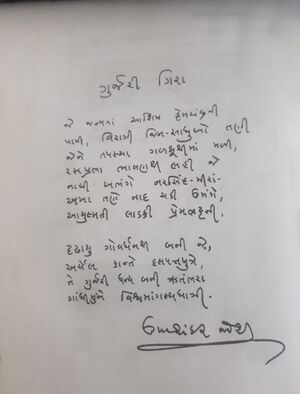 ગુર્જરી ગિરા
જે જન્મતાં આશિષ હેમચંદ્રની
પામી, વિરાગી જિન-સાધુઓ તણી
જેને તપસ્યા ગળથૂથીમાં મળી,
રસપ્રભા ભાલણથી લહી જે
નાચી અભંગે નરસિંહ-મીરાં-
અખા તણે નાદ ચડી ઉમંગે,
આયુષ્મતી લાડકી પ્રેમભટ્ટની.
દૃઢાયુ ગોવર્ધનથી બની જે,
અર્ચેલ કાન્તે દલપત્તપુત્રે,
તે ગુર્જરી ધન્ય બની ઋતંભરા
ગાંધીમુખે વિશ્વમાંગલ્યધાત્રી.
ઉમાશંકર જોશી